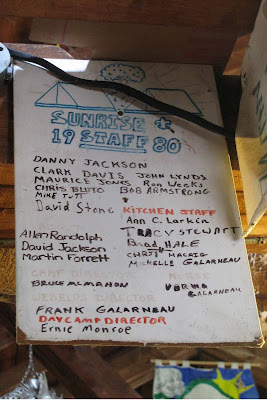 SUNRISE
19 STAFF 80
DANNY JACKSON
CLARK DAVIS JOHN LYNDS
MAURICE JONES Ron Weeks
CHRIS BLUTO BOB ARMSTRONG
MIKE TUTT
David Stone
KITCHEN STAFF
Ann C. Larkin
TRACY STEWART
Brad HALE
CHRIS MACAIG
MICHELLE GALARNEAU
Allen Randolph
David Jackson
Martin Forrett
CAMP DIRECTOR
BRUCE MCMAHON
NURSE
VERNA
GALARNEAU
WEBELOS DIRECTOR
FRANK GALARNEAU
DAY CAMP DIRECTOR
Ernie Monroe